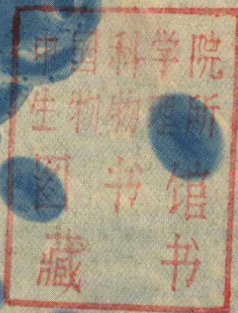 中国科学院
生物物理所
图书馆
藏书